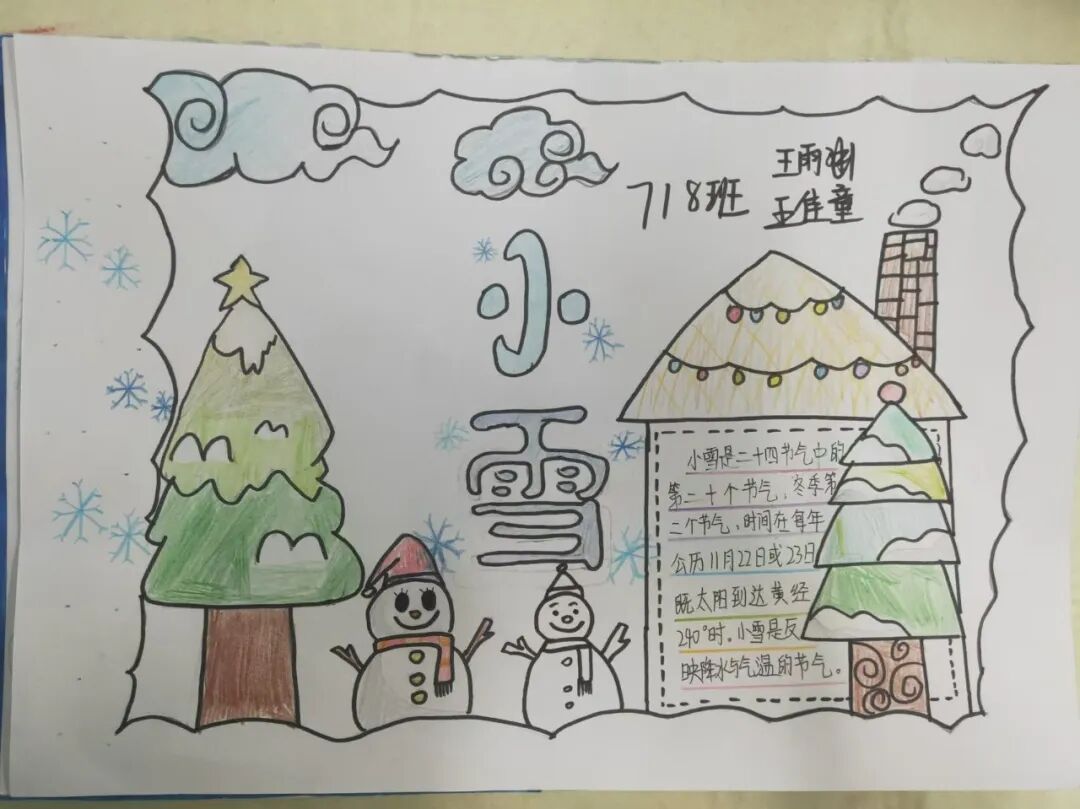 718班
王雨
王佳童
小
雪
小雪是二十四节气中的
第二十个节气，冬季第
二个节气，时间在每年
公历11月22日或23日
既太阳到达黄经
240°时。小雪是反
映降水与气温的节气。